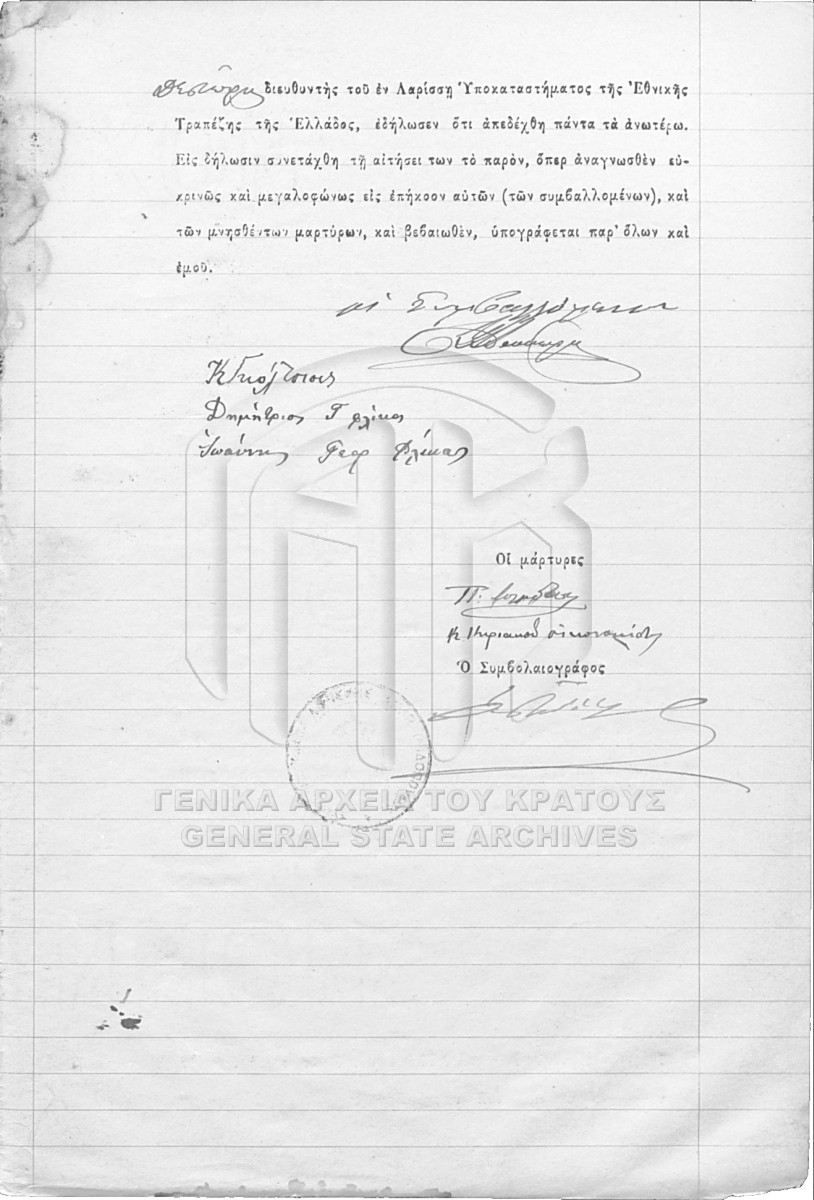 διευθυντὴς τοῦ ἐν Λαρίσσῃ Ὑποκαταστήματος τῆς Ἐθνικῆς
Τραπέζης τῆς Ἑλλάδος, ἐδήλωσεν ὅτι ἀπεδέχθη πάντα τὰ ἀνωτέρω.
Εἰς δήλωσιν συνετάχθη τῇ αἰτήσει των τὸ παρὸν, ὅπερ ἀναγνωσθὲν εὐ-
κρινῶς καὶ μεγαλοφώνως εἰς ἐπήκοον αὐτῶν (τῶν συμβαλλομένων), καὶ
τῶν μνησθέντων μαρτύρων, καὶ βεβαιωθὲν, ὑπογράφεται παρ' ὅλων καὶ
ἐμοῦ.
οἱ Συμβαλλόμενοι
Δημήτριος Γ Φλίκας
Ἰωάννης Γεωρ Φλίκας
Οἱ μάρτυρες
Π.
Κ Κυριακοῦ
Ὁ Συμβολαιογράφος
ΓΕΝΙΚΑ ΑΡΧΕΙΑ ΤΟΥ ΚΡΑΤΟΥΣ
GENERAL STATE ARCHIVES